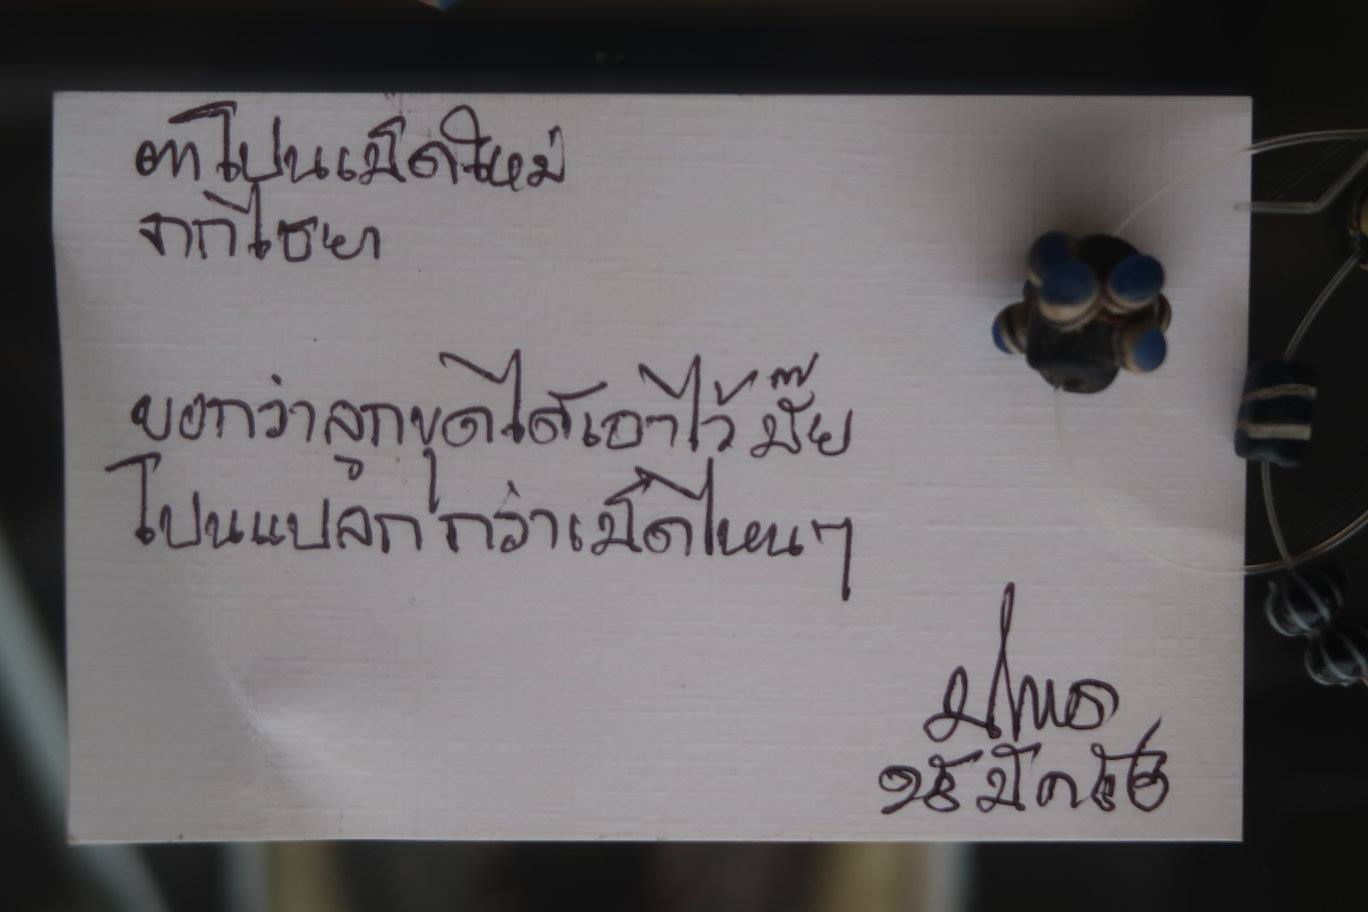 ตาโปนเม็ดใหม่
จากไชยา
บอกว่าลูกขุดได้เอาไว้ มั๊ย
โปนแปลกกว่าเม็ดไหนๆ